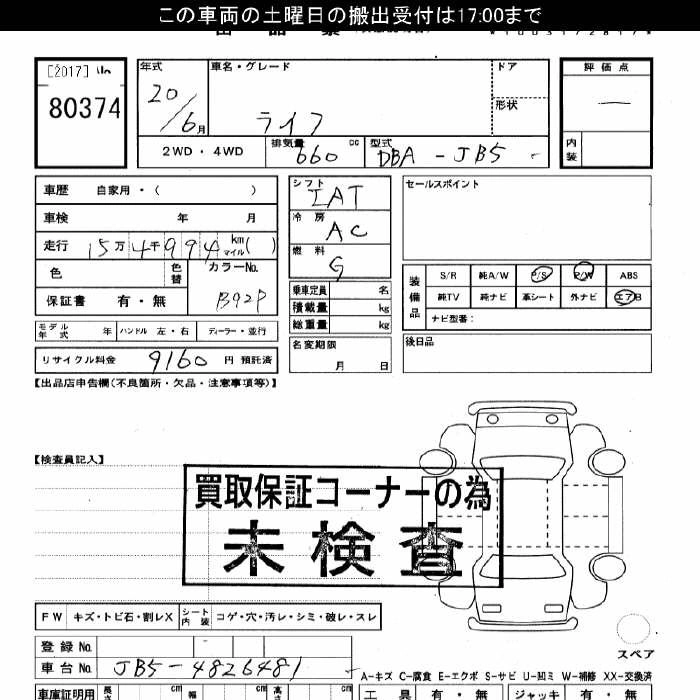 この車両の土曜日の搬出受付は17:00まで
[2017]
80374
年式 20/6月
車名・グレード ライフ
ドア
形状
2WD・4WD
排気量 660 cc
型式 DBA-JB5
評価点
―
内装
車歴 自家用・( )
車検 年 月
走行 15万4千994 km マイル( )
色 色替 カラーNo. B92P
保証書 有・無
シフト IAT
冷房 AC
燃料 G
乗車定員 名
積載量 kg
総重量 kg
名変期限 月 日
セールスポイント
装備品
S/R 純A/W P/S P/W ABS
純TV 純ナビ 革シート 外ナビ エアB
ナビ型番:
後日品
モデル年式 年 ハンドル 左・右 ディーラー・並行
リサイクル料金 9160 円 預託済
【出品店申告欄(不良箇所・欠品・注意事項等)】
【検査員記入】
買取保証コーナーの為
未検査
FW キズ・トビ石・割レX シート内装 コゲ・穴・汚レ・シミ・破レ・スレ
登録No.
車台No. JB5-4826481
スペア
A-キズ C-腐食 E-エクボ S-サビ U-凹ミ W-補修 XX-交換済
車庫証明用 長さ cm 幅 cm 高さ cm
工具 有・無 ジャッキ 有・無